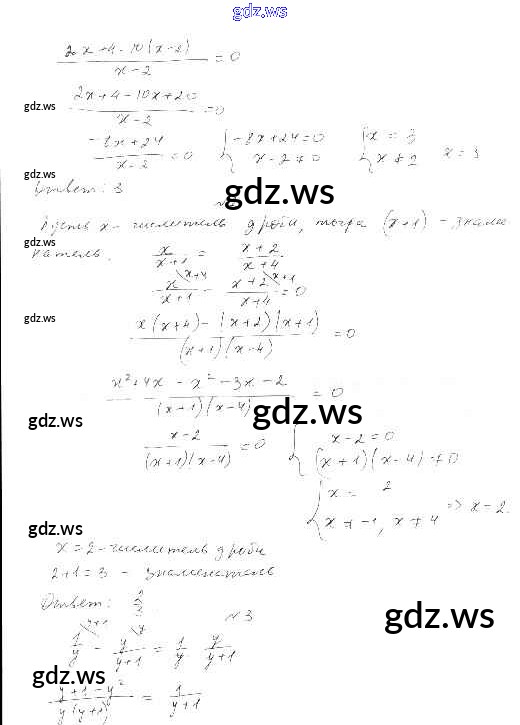 gdz.ws
(2x+4-10(x-2))/(x-2) = 0
gdz.ws
(2x+4-10x+20)/(x-2) = 0
gdz.ws
(-8x+24)/(x-2) = 0 { -8x+24=0 x-2≠0 { x = 3 x≠2 x=3
gdz.ws
Ответ: 3
gdz.ws
Пусть x - числитель дроби, тогда (x+1) - знаме
gdz.ws
натель. x/(x+1) = (x+2)/(x+4)
x/(x+1) \x+4 - (x+2)/(x+4) \x+1 = 0
gdz.ws
(x(x+4)-(x+2)(x+1))/((x+1)(x-4)) = 0
(x²+4x-x²-3x-2)/((x+1)(x-4)) = 0
gdz.ws
gdz.ws
(x-2)/((x+1)(x-4)) = 0 { x-2=0 (x+1)(x-4)≠0
{ x = 2 x≠-1, x≠4 => x-2.
gdz.ws
x=2 - числитель дроби
2+1=3 - знаменатель
Ответ: 2/3.
gdz.ws
N3
1/y \y+1 - y/(y+1) \y = 1/y · y/(y+1)
gdz.ws
(y+1-y²)/(y(y+1)) = 1/(y+1)